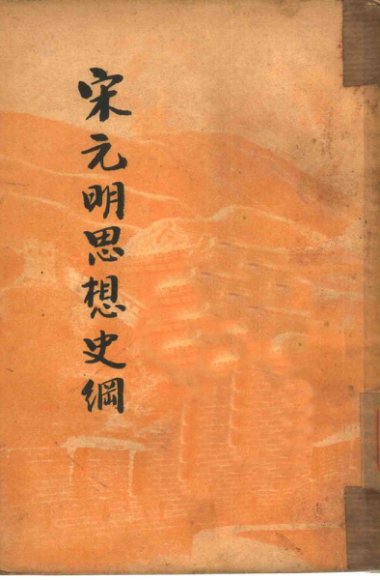 宋元明思想史綱